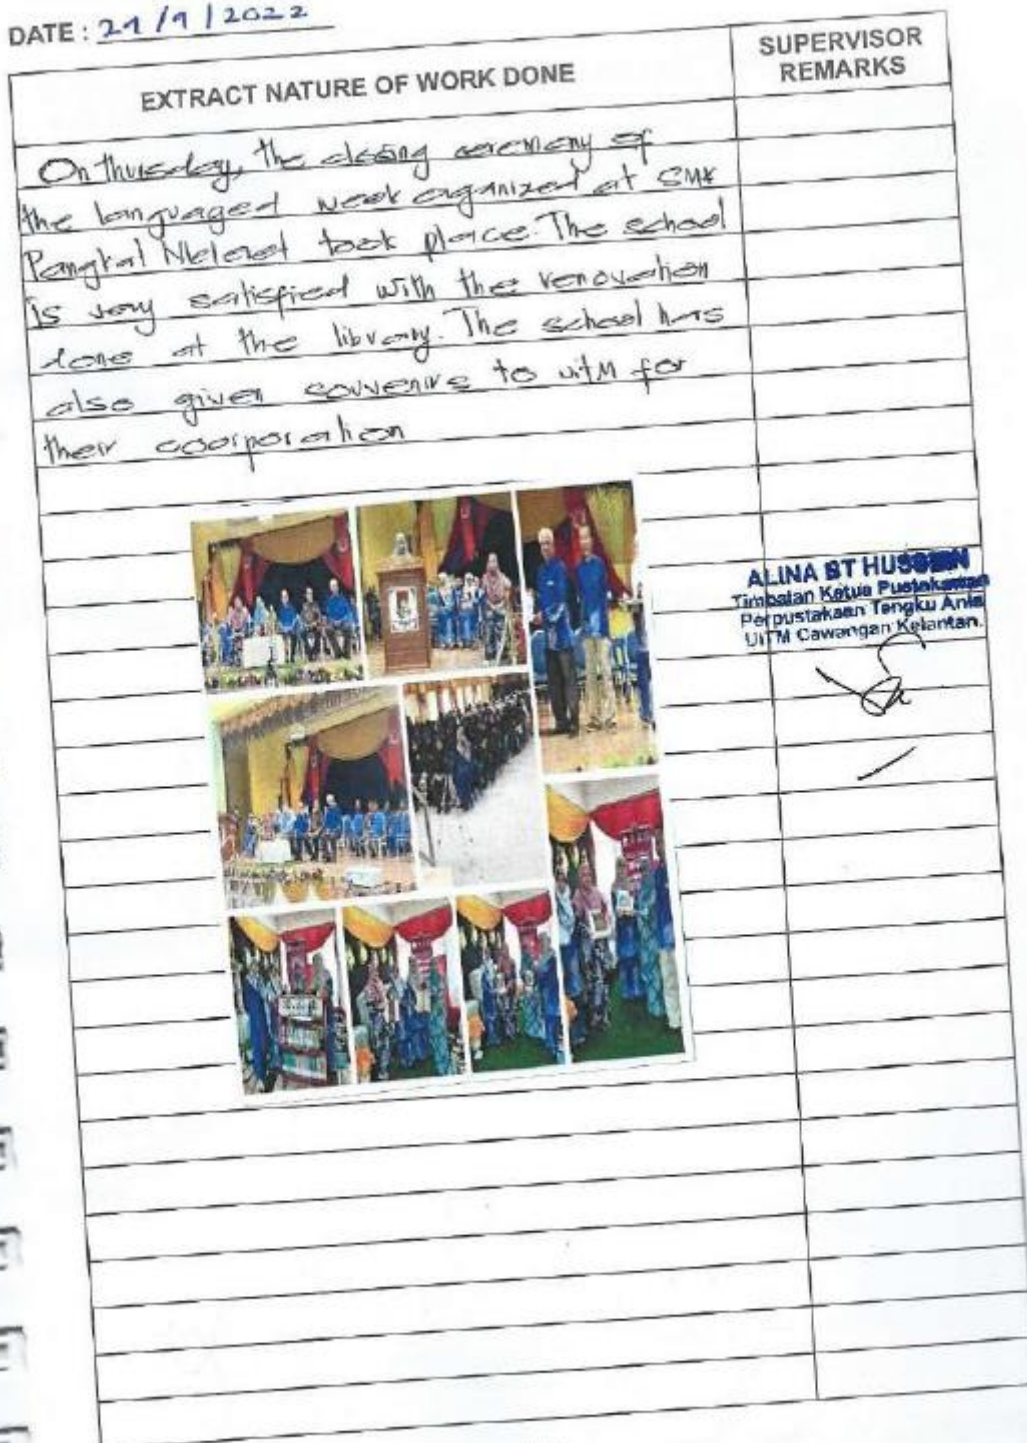 DATE : 29/9/2022
EXTRACT NATURE OF WORK DONE
SUPERVISOR
REMARKS
On thursday, the closing ceremony of
the languaged week organized at SMK
Pangkal Meleret took place. The school
is very satisfied with the renovation
done at the library. The school has
also given souvenirs to uitM for
their coorporation
ALINA BT HUSSEIN
Timbalan Ketua Pustakawan
Perpustakaan Tengku Anis
UiTM Cawangan Kelantan.